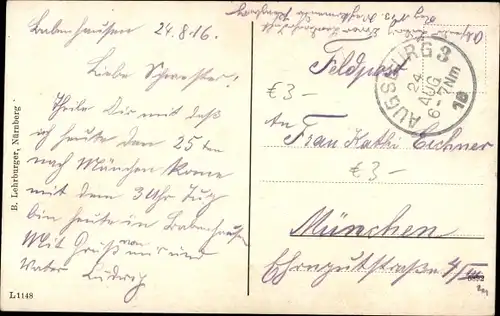 Babenhausen 24.8.16.
Liebe Schwester!
Theile Dir mit daß
ich heute den 25ten
nach München kome
mit dem 3 Uhr Zug
bin heute in Babenhausen
Mit Gruß von mir und
Vater Ludwig
B. Lehrburger, Nürnberg
L1148
Feldpost
AUGSBURG 3
24
AUG
6-7Nm
16
€3-
An
Frau Kathi Eichner
€3-
München
Ehrengutstraße 4/